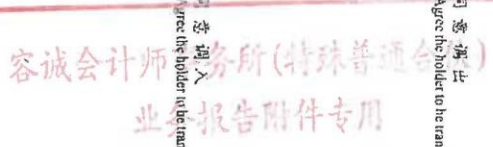 同意调出
Agree the holder to be tran
同意调入
Agree the holder to be tran
容诚会计师事务所(特殊普通合伙)
业务报告附件专用